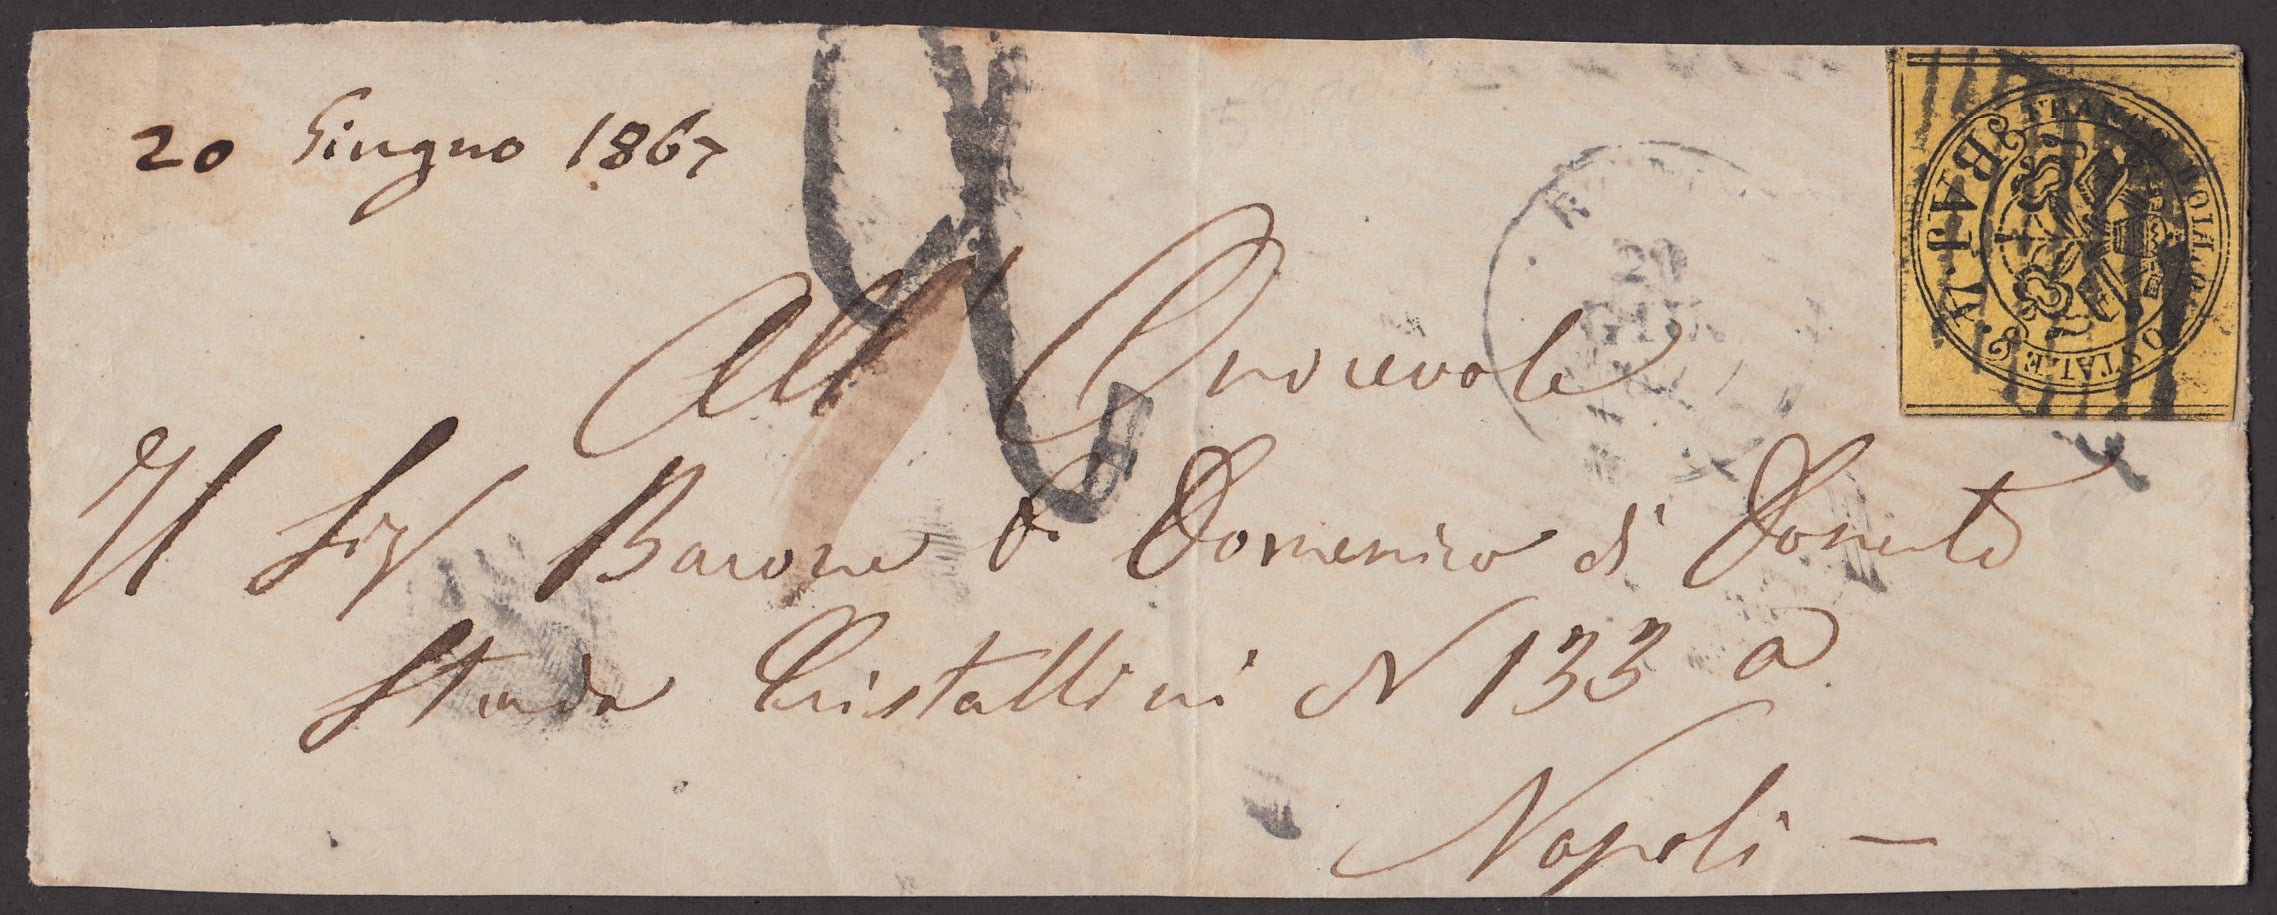 20 Giugno 1867
All Onorevole
Il Sig Barone D. Domenico di Donato
Strada Cristallini N 133 a
Napoli —
20
GIU
FRANCO BOLLO POSTALE
BAJ. 4